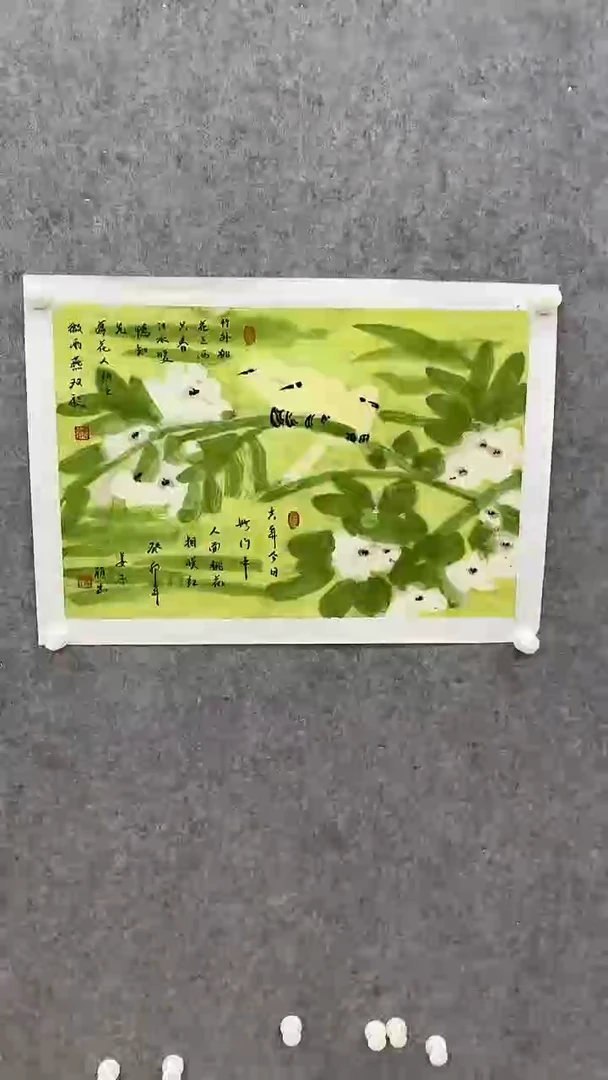 竹外桃
花三两
只春
江水暖
鸭知
先
落花人独立
微雨燕双飞
去年今日
此门中
人面桃花
相映红
癸卯年